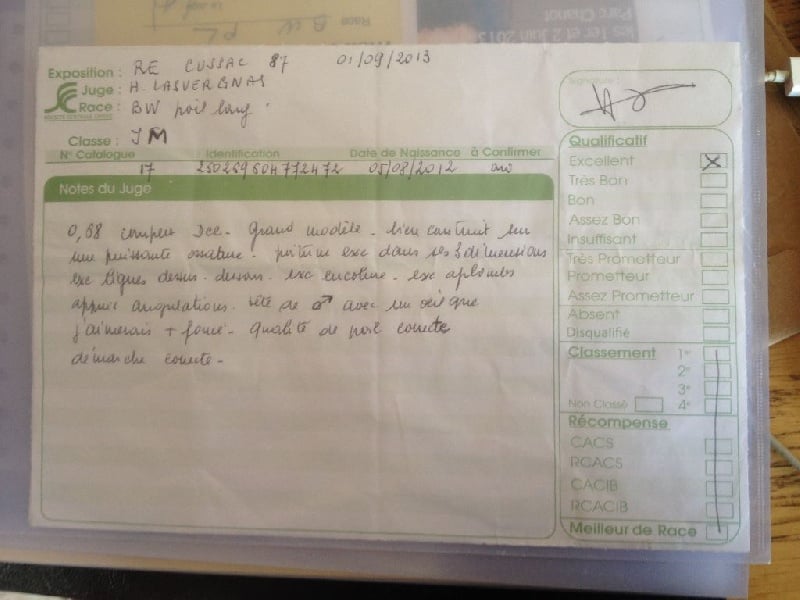 Race
les 1er et 2 Juin 2013
Parc Chanot
Exposition : RE CUSSAC 87 01/09/2013
Juge : H. LASVERGNAS
Race : BW poil long
SOCIÉTÉ CENTRALE CANINE
Classe : JM
N° Catalogue Identification Date de Naissance à Confirmer
17 250269604772472 05/08/2012
Notes du Juge
0,68 complet Grand modèle - bien construit sur
une puissante ossature - poitrine exc dans ses 3 dimensions
exc lignes dessus-dessous. exc encolure - exc aplombs
angulations. tête de ♂ avec un œil que
j'aimerais + foncé - qualité de poil correcte
démarche correcte -
Signature :
Qualificatif
Excellent X
Très Bon
Bon
Assez Bon
Insuffisant
Très Prometteur
Prometteur
Assez Prometteur
Absent
Disqualifié
Classement 1er
2e
3e
Non Classé 4e
Récompense
CACS
RCACS
CACIB
RCACIB
Meilleur de Race